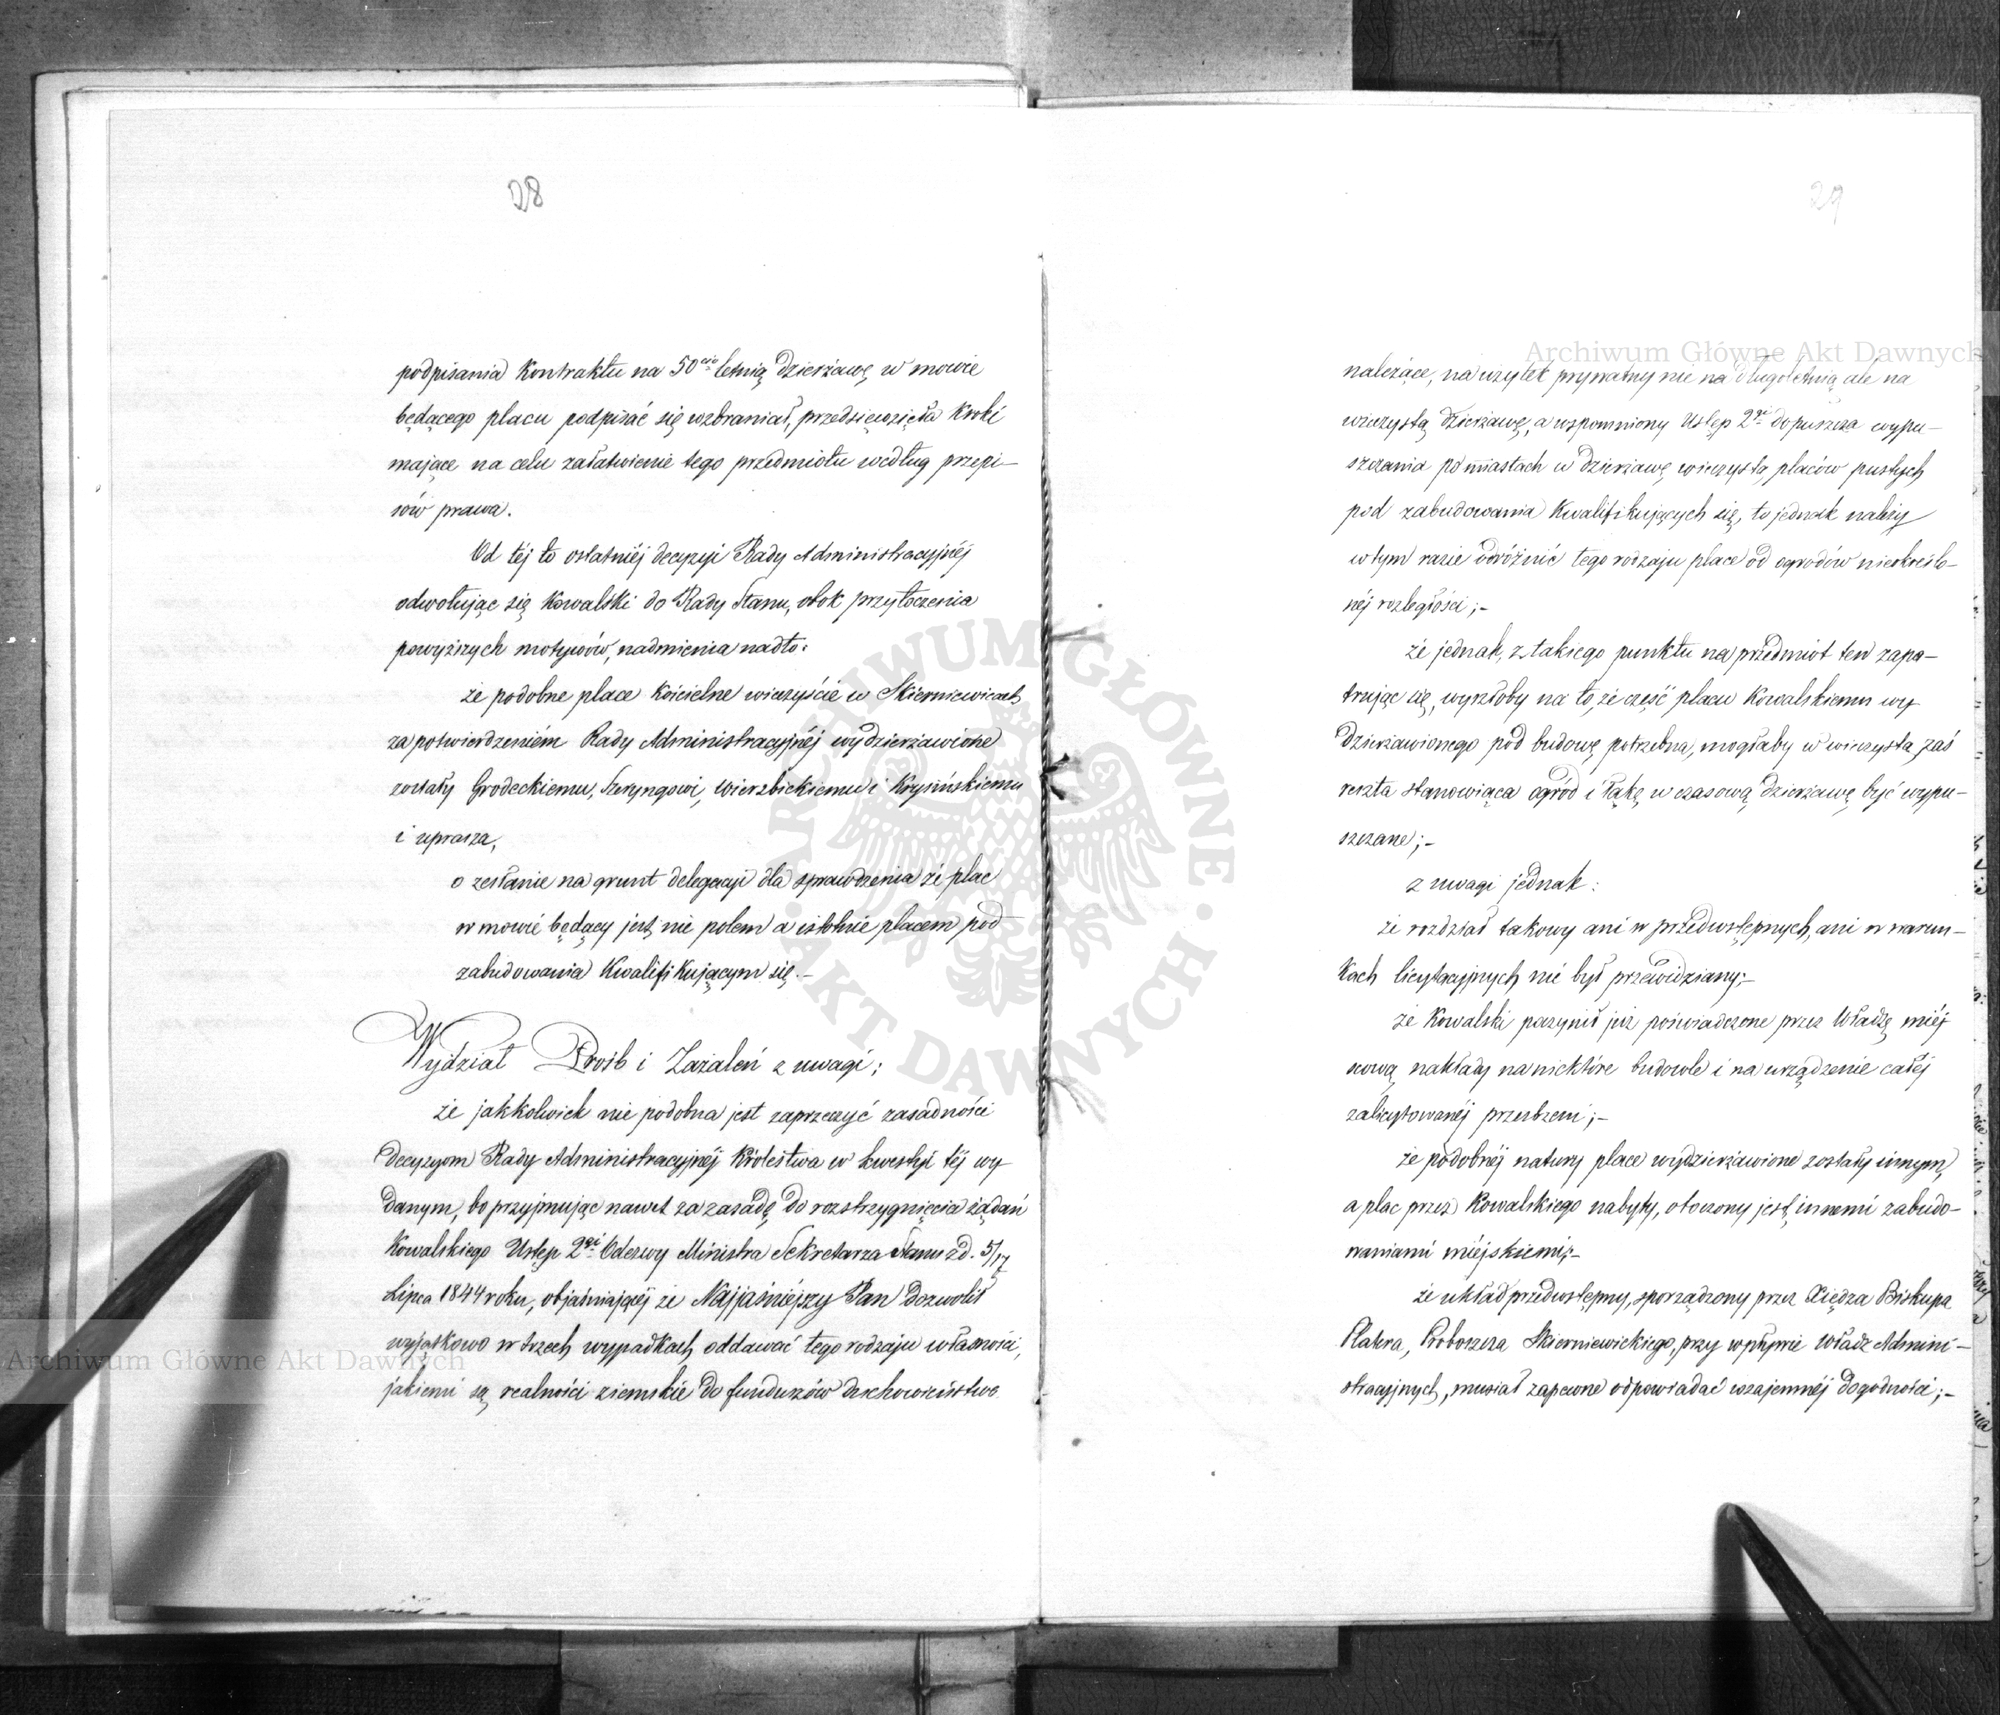 28
podpisania Kontraktu na 50cio letnią dzierżawę w mowie
będącego placu podpisać się wzbraniał, przedsięwzięła Kroki
mające na celu załatwienie tego przedmiotu według przepi-
sów prawa.
Od téj to ostatniéj decyzyi Rady Administracyjnéj
odwołując się Kowalski do Rady Stanu, obok przytoczenia
powyższych motywów, nadmienia nadto:
że podobne place Kościelne wieczyście w Skierniewicach
za potwierdzeniem Rady Administracyjnéj wydzierżawione
zostały Grodeckiemu, Szryngowi, Wierzbickiemu i Krysińskiemu
i uprasza,
o zesłanie na grunt delegacyi dla sprawdzenia że plac
w mowie będący jest nie polem a istotnie placem pod
zabudowania Kwalifikującym się.-
Wydział Prośb i Zażaleń z uwagi;
że jakkolwiek nie podobna jest zaprzeczyć zasadności
decyzyom Rady Administracyjnéj Królestwa w kwestyi téj wy
danym, bo przyjmując nawet za zasadę do rozstrzygnięcia żądań
Kowalskiego Ustęp 2gi Odezwy Ministra Sekretarza Stanu z d. 5/17
Lipca 1844 roku, objaśniającéj że Najjaśniéjszy Pan dozwolił
wyjątkowo w trzech wypadkach oddawać tego rodzaju własności,
jakiemi są realności ziemskie do funduszów duchowieństwa
29
należące, na użytek prywatny nie na długoletnią ale na
wieczystą dzierżawę, a wspomniony Ustęp 2gi dopuszcza wypu-
szczania po miastach w dzierżawę wieczystą placów pustych
pod zabudowania Kwalifikujących się, to jednak należy
w tym razie odróżnić tego rodzaju place od ogrodów nieokreślo-
néj rozległości;-
że jednak, z takiego punktu na przedmiot ten zapa-
trując się, wyszłoby na to, że część placu Kowalskiemu wy
dzierżawionego pod budowę potrzebna, mogłaby w wieczystą zaś
reszta stanowiąca ogród i łąkę w czasową dzierżawę być wypu-
szczane;-
z uwagi jednak:
że rozdział takowy ani w przedwstępnych, ani w warun-
kach licytacyjnych nie był przewidziany;-
że Kowalski poczynił już poświadczone przez Władzę miéj
scową nakłady na niektóre budowle i na urządzenie całéj
zalicytowanéj przestrzeni;-
że podobnéj natury place wydzierżawione zostały innym,
a plac przez Kowalskiego nabyty, otoczony jest innemi zabudo-
waniami miéjskiemi;-
że układ przedwstępny, sporządzony przez Xiędza Biskupa
Platera, Proboszcza Skierniewickiego, przy wpływie Władz Admini-
stracyjnych, musiał zapewne odpowiadać wzajemnéj dogodności;-
Archiwum Główne Akt Dawnych
ARCHIWUM GŁÓWNE · AKT DAWNYCH ·
Archiwum Główne Akt Dawnych